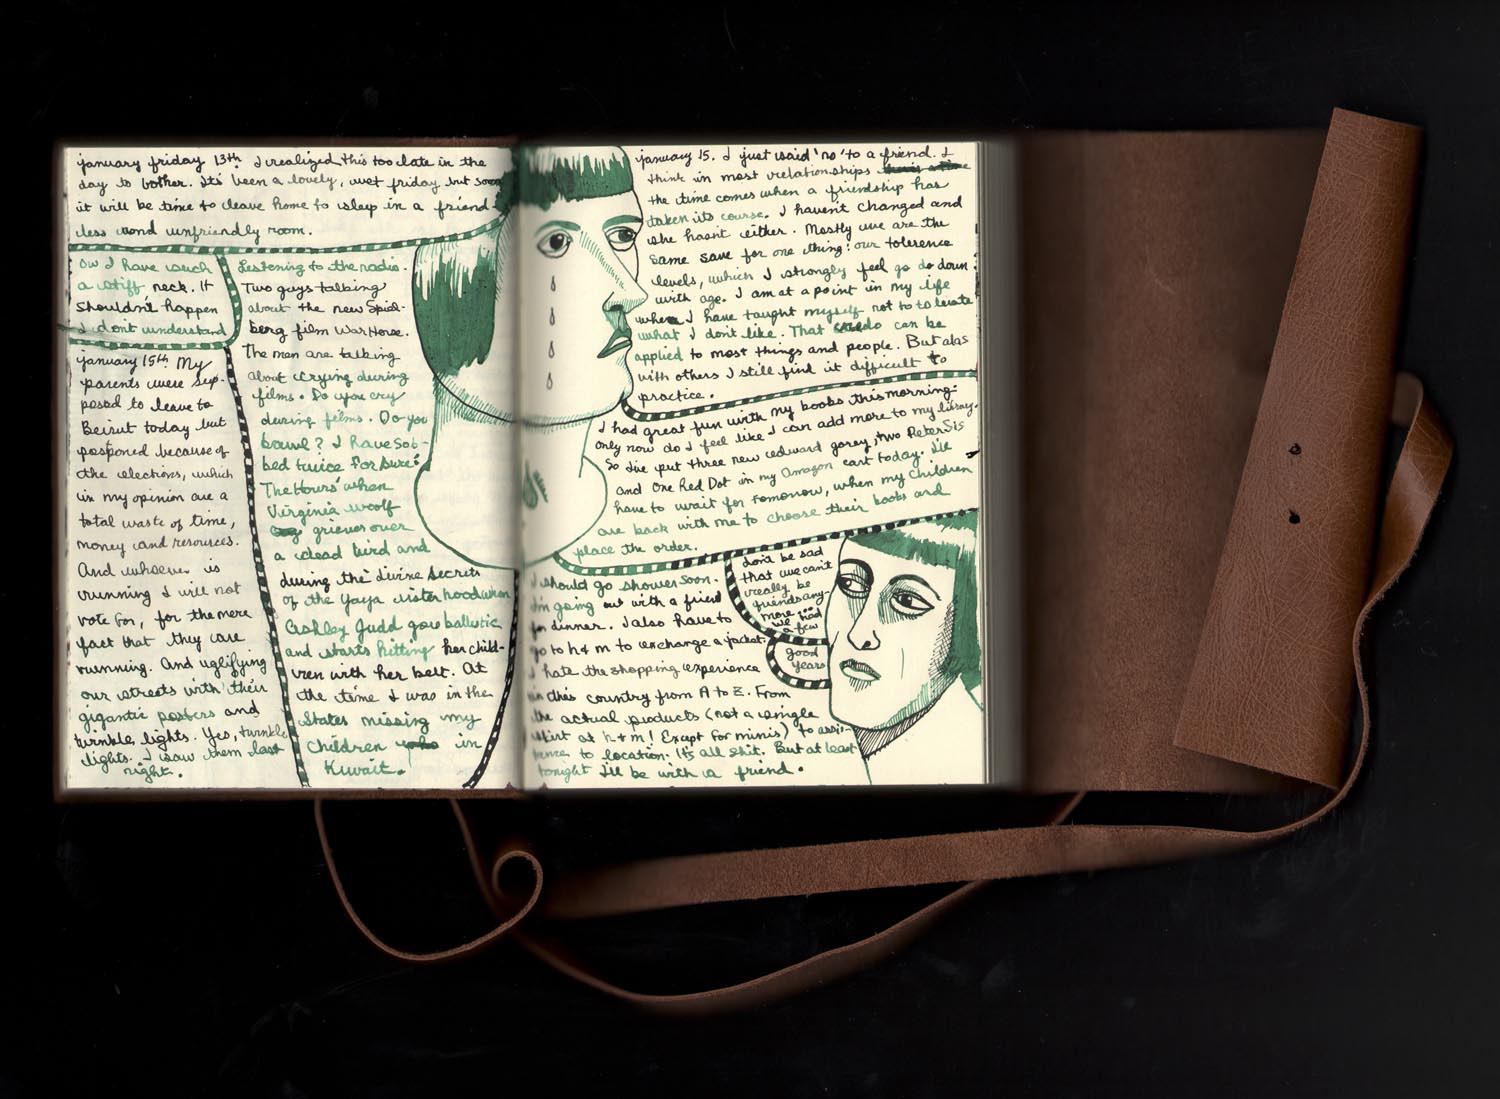 january friday 13th I realized this too late in the
day to bother. It's been a lovely, wet friday but soon
it will be time to leave home to sleep in a friend-
less and unfriendly room.
ow I have such
a stiff neck. It
shouldn't happen
I don't understand
january 15th My
parents were sup-
posed to leave to
Beirut today but
postponed because of
the elections, which
in my opinion are a
total waste of time,
money and resources.
And whoever is
running I will not
vote for, for the mere
fact that they are
running. And uglifying
our streets with their
gigantic posters and
twinkle lights. Yes, twinkle
lights. I saw them last
night.
Listening to the radio.
Two guys talking
about the new Spiel-
berg film War Horse.
The men are talking
about crying during
films. Do you cry
during films. Do you
bawl? I have sob-
bed twice for sure:
The Hours when
Virginia Woolf
grieves over
a dead bird and
during the divine secrets
of the Yaya sisterhood when
Ashley Judd goes ballistic
and starts hitting her child-
ren with her belt. At
the time I was in the
States missing my
children in
Kuwait.
january 15. I just said 'no' to a friend. I
think in most relationships
the time comes when a friendship has
taken its course. I haven't changed and
she hasn't either. Mostly we are the
same save for one thing: our tolerance
levels, which I strongly feel go down
with age. I am at a point in my life
where I have taught myself not to tolerate
what I don't like. That can be
applied to most things and people. But alas
with others I still find it difficult to
practice.
I had great fun with my books this morning.
Only now do I feel like I can add more to my library.
So I've put three new edward gorey, two Peter Sis
and One Red Dot in my Amazon cart today. I'll
have to wait for tomorrow, when my children
are back with me to choose their books and
place the order.
I should go shower soon.
I'm going out with a friend
for dinner. I also have to
go to h&m to exchange a jacket.
I hate the shopping experience
in this country from A to Z. From
the actual products (not a single
skirt at h&m! Except for minis) to assis-
tance to location. It's all shit. But at least
tonight I'll be with a friend.
don't be sad
that we can't
really be
friends any-
more
we had
a few
good
years